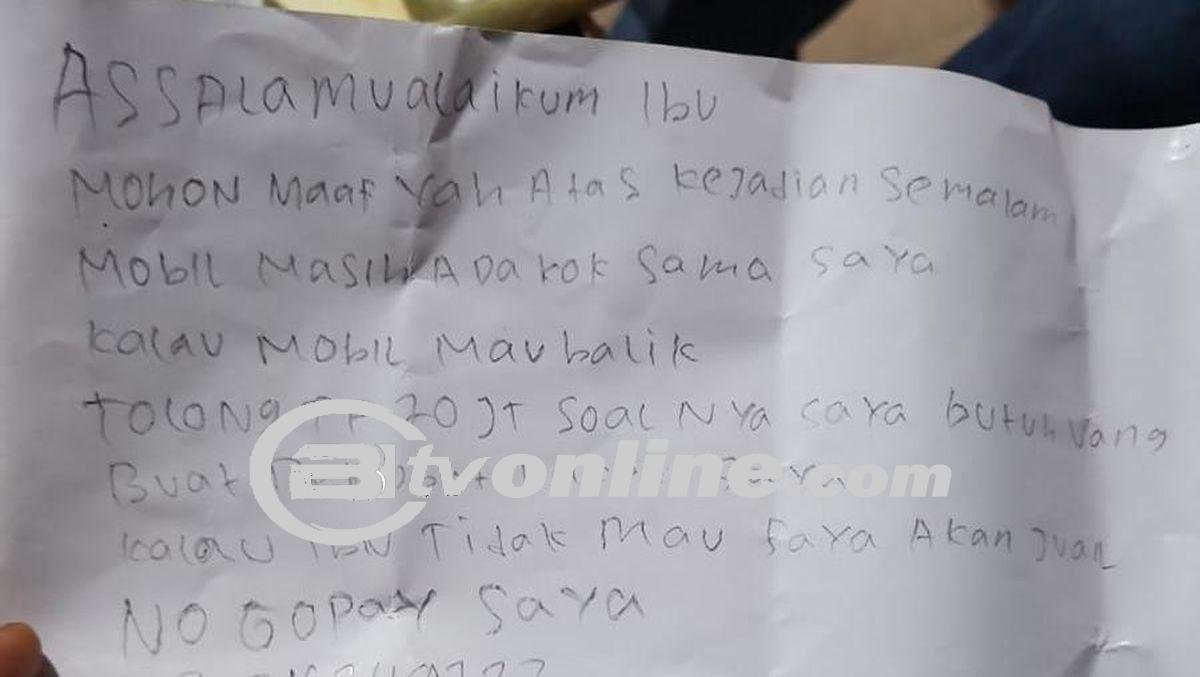 ASSALAMUALAIKUM IBU
MOHON MAAF YAH ATAS KEJADIAN SEMALAM
MOBIL MASIH ADA KOK SAMA SAYA
KALAU MOBIL MAU BALIK
TOLONG TF 20 JT SOALNYA SAYA BUTUH UANG
BUAT SAYA
KALAU IBU TIDAK MAU SAYA AKAN JUAL
NO GOPAY SAYA
Btvonline.com